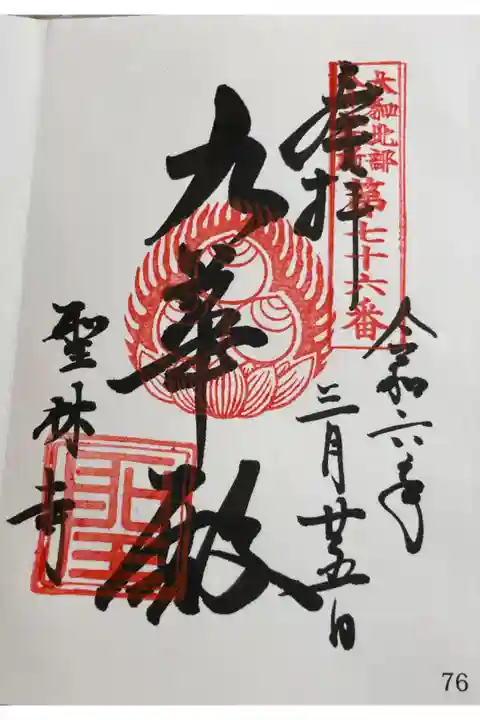 大和北部
第七十六番
奉拝
令和六年
三月廿五日
九華殿
聖林寺
76